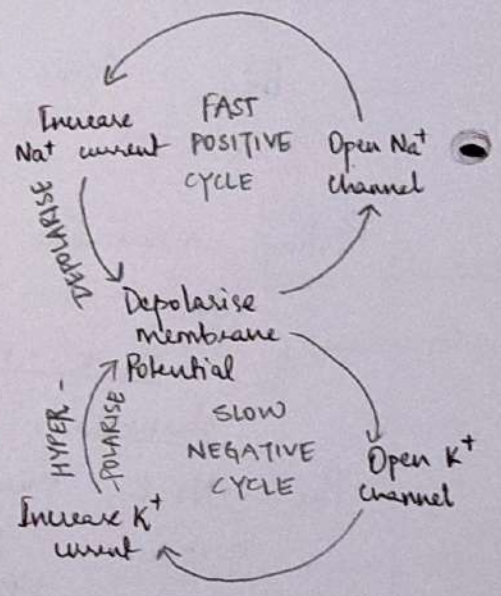 Increase
Na⁺ current
FAST
POSITIVE
CYCLE
Open Na⁺
channel
DEPOLARISE
Depolarise
membrane
Potential
HYPER-
-POLARISE
SLOW
NEGATIVE
CYCLE
Open K⁺
channel
Increase K⁺
current